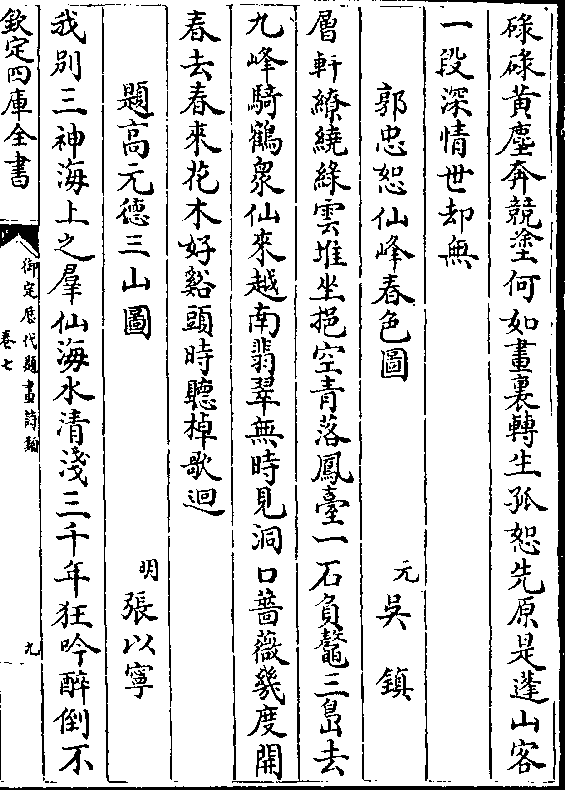 碌碌黃塵奔競塗何如畫裏轉生孤恕先原是蓬山客
一段深情世却無
郭忠恕仙峰春色圖 元 吳鎮
層軒繚繞綠雲堆坐挹空青落鳳臺一石負鼇三島去
九峰騎鶴衆仙來越南翡翠無時見洞口薔薇幾度開
春去春來花木好谿頭時聽棹歌迴
題高元德三山圖 明 張以寧
我別三神海上之羣仙海水清淺三千年狂吟醉倒不
欽定四庫全書 御定歷代題畫詩類 卷七 九